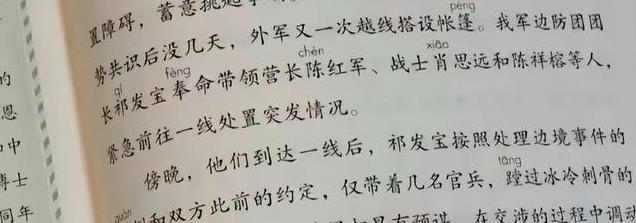 置障碍，蓄意挑起
péng
势共识后没几天，外军又一次越线搭设帐篷。我军边防团团
qí fèng chén xiāo
长祁发宝奉命带领营长陈红军、战士肖思远和陈祥榕等人，
紧急前往一线处置突发情况。
傍晚，他们到达一线后，祁发宝按照处理边境事件的
tāng
和双方此前的约定，仅带着几名官兵，蹚过冰冷刺骨的
在交涉的过程中
的
恩
中
博士
同年